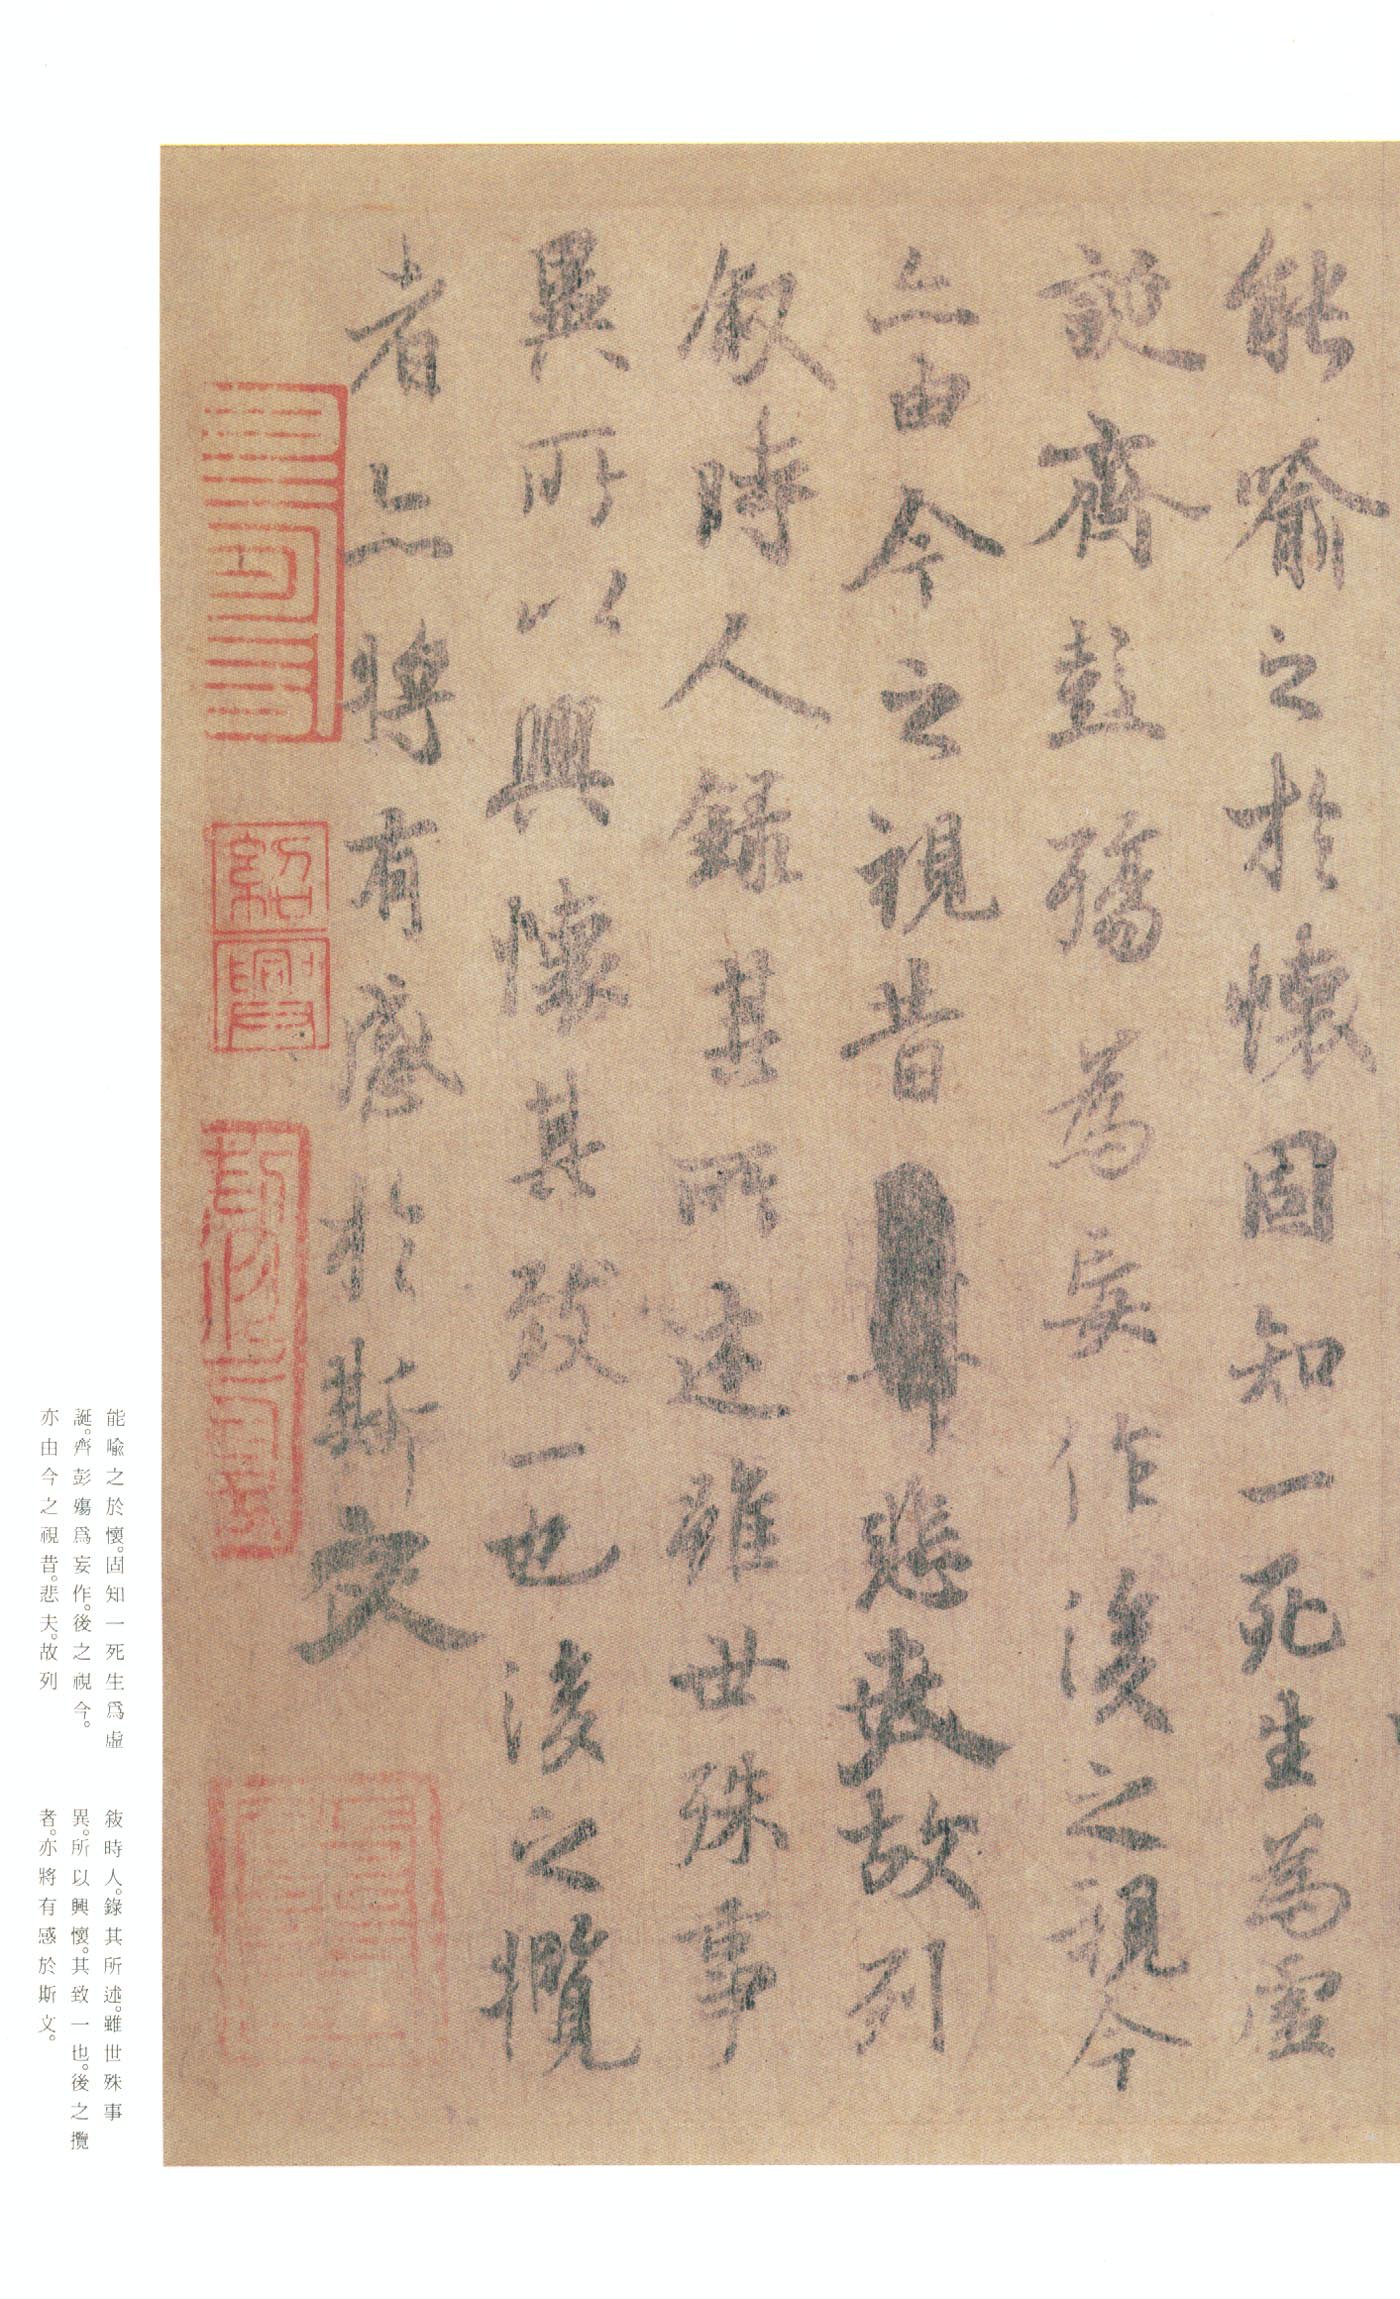 能喻之於懷固知一死生爲虛
誕齊彭殤爲妄作後之視今
亦由今之視昔悲夫故列
叙時人錄其所述雖世殊事
異所以興懷其致一也後之攬
者亦將有感於斯文
紹興
能喻之於懷。固知一死生爲虛
誕。齊彭殤爲妄作。後之視今。
亦由今之視昔。悲夫。故列
敍時人。錄其所述。雖世殊事
異。所以興懷。其致一也。後之攬
者。亦將有感於斯文。